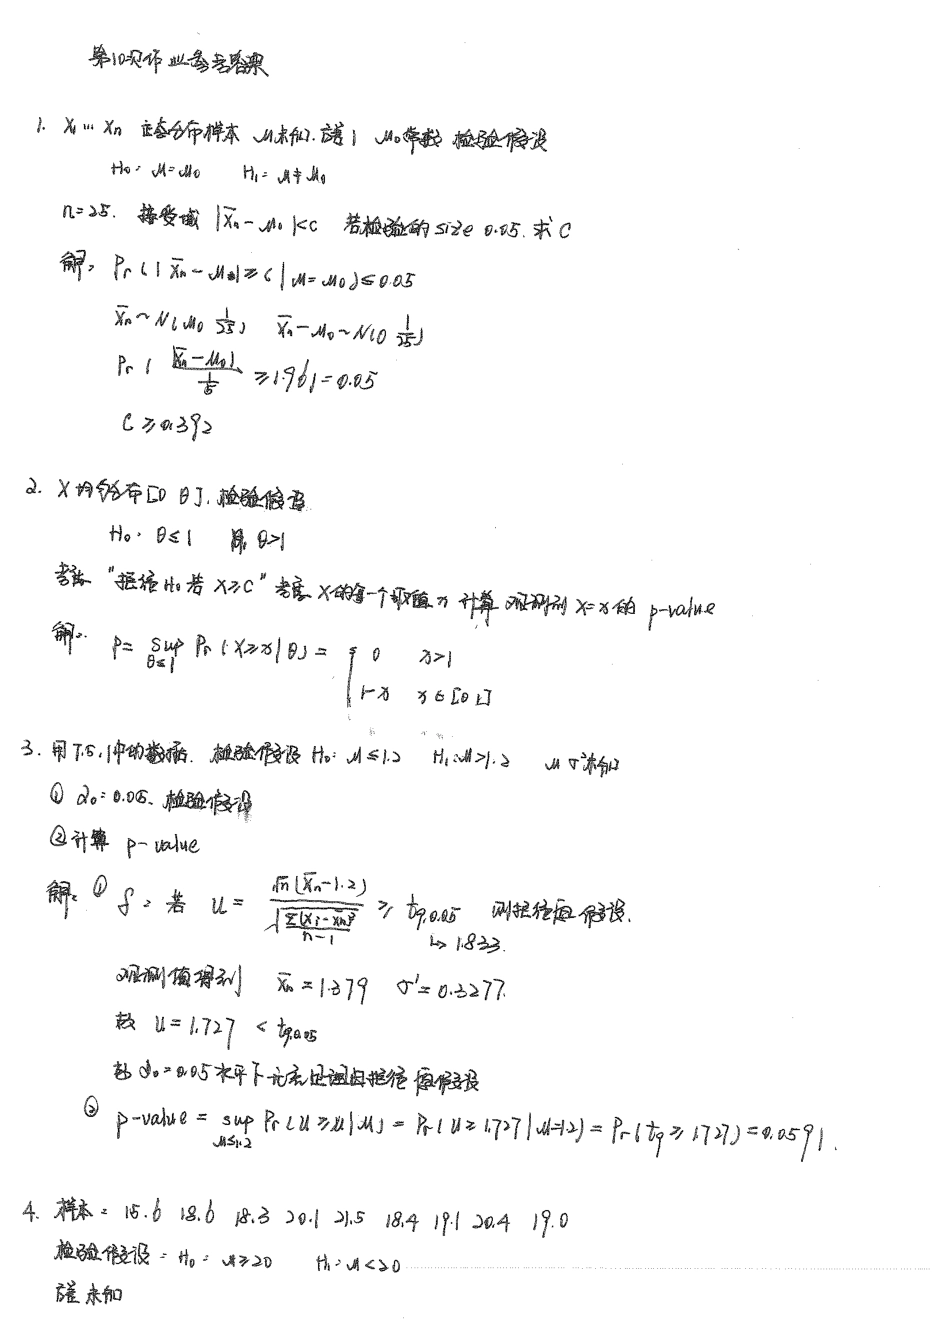 第10次作业参考答案
1. X₁ … Xₙ 正态分布样本 μ未知. 方差1 μ₀常数 检验假设
H₀: μ=μ₀ H₁: μ≠μ₀
n=25. 接受域 |X̄ₙ-μ₀|<c 若检验的size 0.05. 求C
解: Pr(|X̄ₙ-μ₀|≥c|μ=μ₀)≤0.05
X̄ₙ~N(μ₀ 1/25) X̄ₙ-μ₀~N(0 1/25)
Pr( |X̄ₙ-μ₀| / (1/5) ≥1.96)=0.05
C≥0.392
2. X均匀分布[0 θ]. 检验假设
H₀: θ≤1 H₁ θ>1
考虑 "拒绝H₀若X≥C" 考虑X的每一个取值x 计算观测到X=x的 p-value
解: P= sup_{θ≤1} Pr(X≥x|θ) = { 0 x>1
1-x x∈[0 1]
3. 用7.5.1中的数据. 检验假设H₀: μ≤1.2 H₁:μ>1.2 μ σ²未知
① α₀=0.05. 检验假设
②计算 p-value
解: ① δ: 若 U= √n(X̄ₙ-1.2) / √(Σ(Xᵢ-X̄ₙ)²/(n-1)) ≥ t₉,₀.₀₅ 则拒绝原假设.
↳ 1.833.
观测值得到 X̄ₙ=1.379 σ'=0.3277.
故 U=1.727 < t₉,₀.₀₅
在α₀=0.05水平下无充足理由拒绝原假设
② p-value = sup_{μ≤1.2} Pr(U≥u|μ) = Pr(U≥1.727|μ=1.2) = Pr(t₉≥1.727)=0.0591.
4. 样本: 15.6 18.6 18.3 20.1 21.5 18.4 19.1 20.4 19.0
检验假设: H₀: μ≥20 H₁: μ<20
方差未知